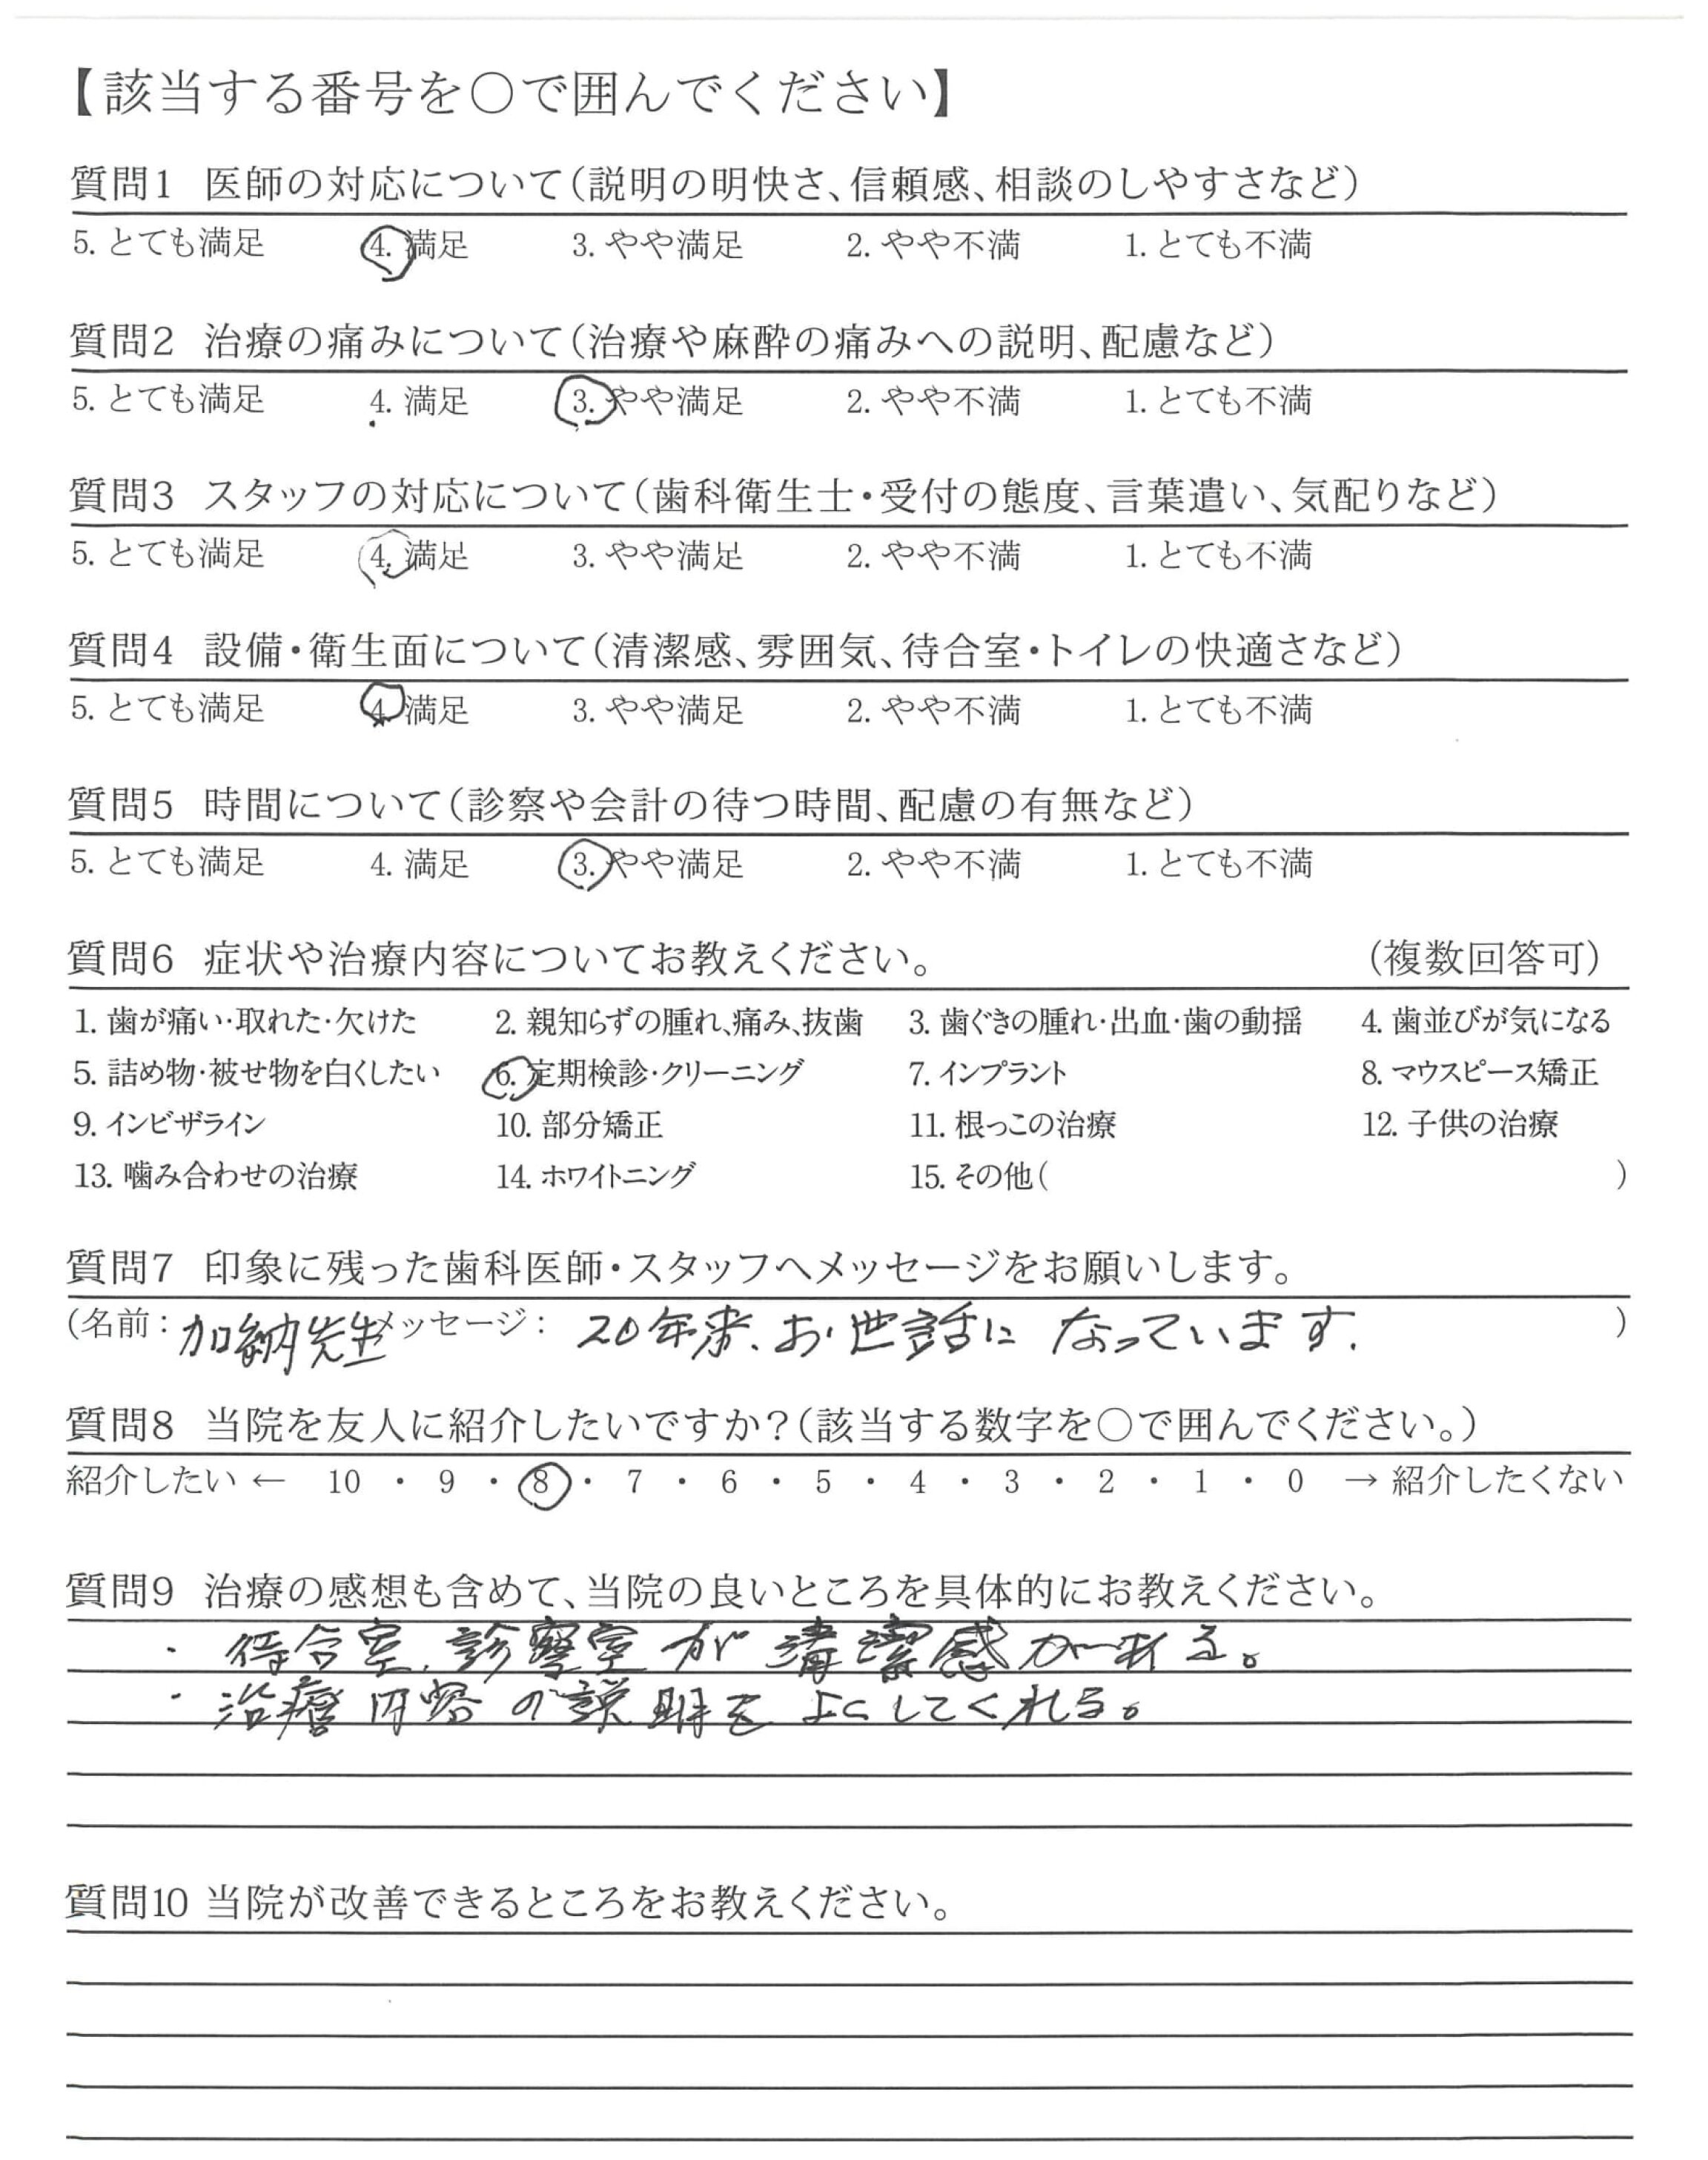 【該当する番号を〇で囲んでください】
質問1 医師の対応について(説明の明快さ、信頼感、相談のしやすさなど)
5. とても満足 4. 満足 3. やや満足 2. やや不満 1. とても不満
質問2 治療の痛みについて(治療や麻酔の痛みへの説明、配慮など)
5. とても満足 4. 満足 3. やや満足 2. やや不満 1. とても不満
質問3 スタッフの対応について(歯科衛生士・受付の態度、言葉遣い、気配りなど)
5. とても満足 4. 満足 3. やや満足 2. やや不満 1. とても不満
質問4 設備・衛生面について(清潔感、雰囲気、待合室・トイレの快適さなど)
5. とても満足 4. 満足 3. やや満足 2. やや不満 1. とても不満
質問5 時間について(診察や会計の待つ時間、配慮の有無など)
5. とても満足 4. 満足 3. やや満足 2. やや不満 1. とても不満
質問6 症状や治療内容についてお教えください。 (複数回答可)
1. 歯が痛い・取れた・欠けた 2. 親知らずの腫れ、痛み、抜歯 3. 歯ぐきの腫れ・出血・歯の動揺 4. 歯並びが気になる
5. 詰め物・被せ物を白くしたい 6. 定期検診・クリーニング 7. インプラント 8. マウスピース矯正
9. インビザライン 10. 部分矯正 11. 根っこの治療 12. 子供の治療
13. 噛み合わせの治療 14. ホワイトニング 15. その他( )
質問7 印象に残った歯科医師・スタッフへメッセージをお願いします。
(名前: 加納先生 メッセージ: 20年来、お世話に なっています. )
質問8 当院を友人に紹介したいですか?(該当する数字を〇で囲んでください。)
紹介したい ← 10 ・ 9 ・ 8 ・ 7 ・ 6 ・ 5 ・ 4 ・ 3 ・ 2 ・ 1 ・ 0 → 紹介したくない
質問9 治療の感想も含めて、当院の良いところを具体的にお教えください。
・ 待合室、診察室が清潔感がある。
・ 治療内容の説明をよくしてくれる。
質問10 当院が改善できるところをお教えください。